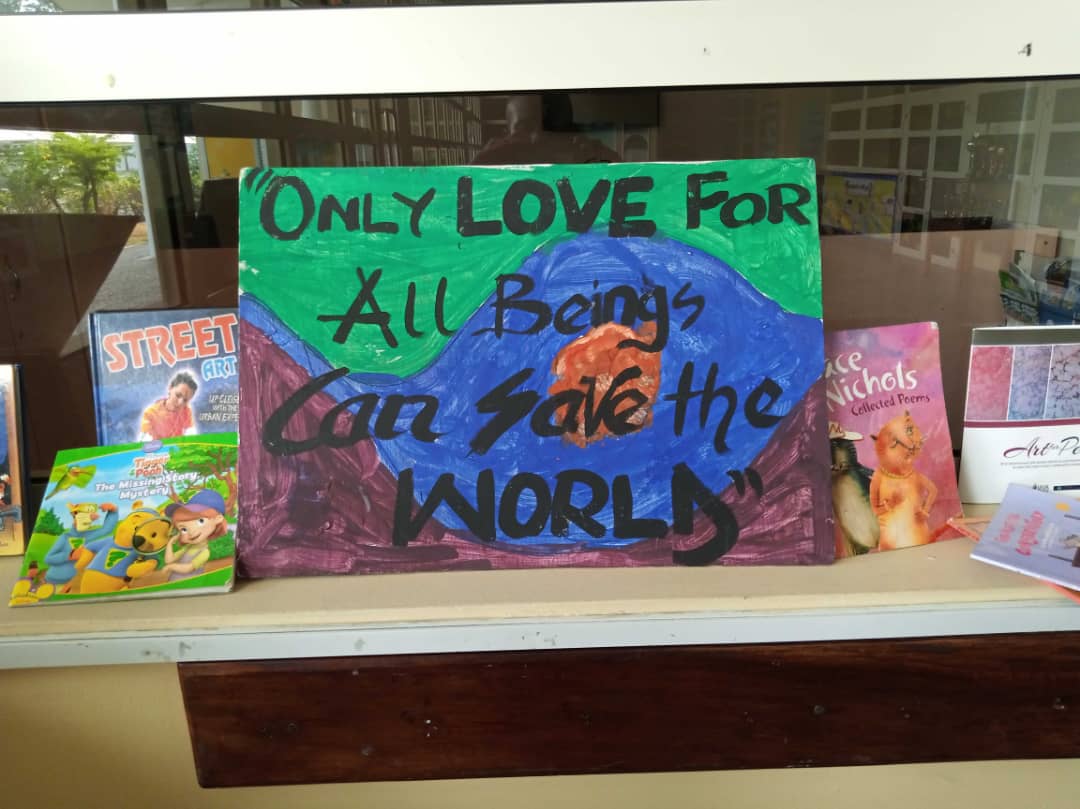 "ONLY LOVE FOR
All Beings
Can Save the
WORLD"
STREET
ART
UP CLOSE
WITH THE
URBAN
Tigger
& Pooh
The Missing Story
Mystery
ace
Nichols
Collected Poems
Art